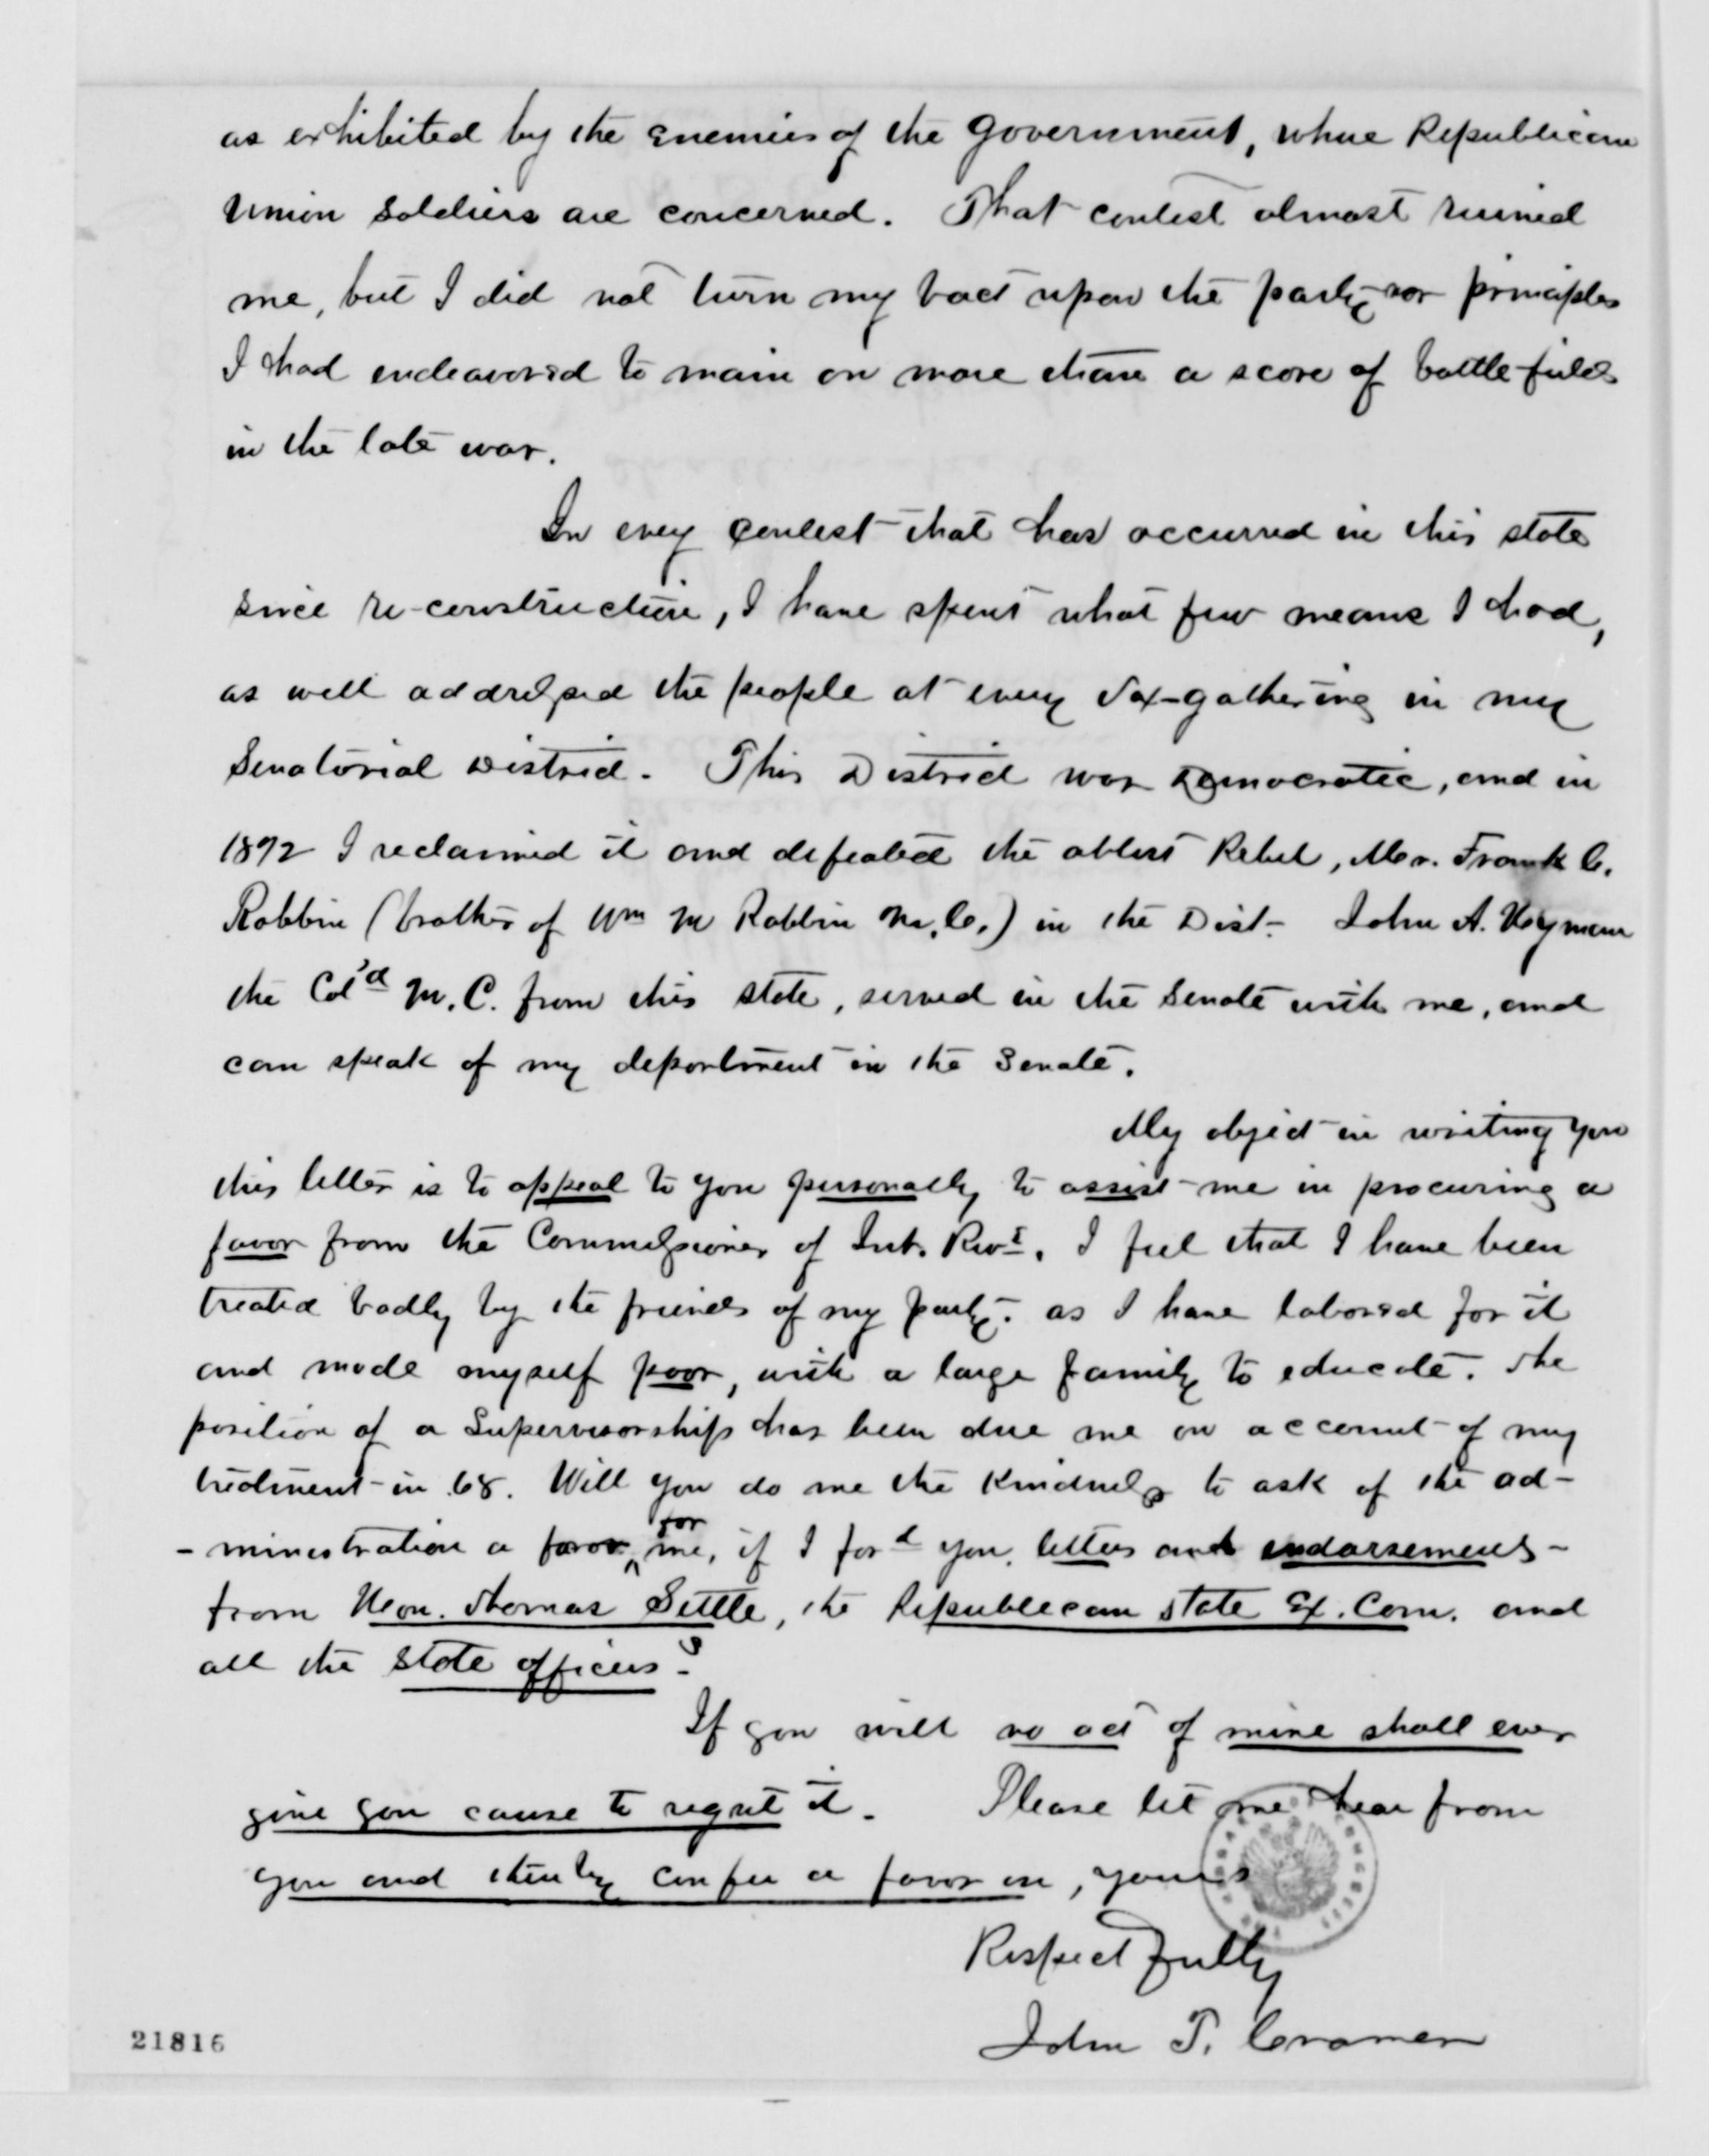 as exhibited by the Enemies of the Government, where Republican
Union Soldiers are concerned. That contest almost ruined
me, but I did not turn my back upon the party nor principles
I had endeavored to main on more than a score of battle-fields
in the late war.
In every Contest that has occurred in this state
since re-construction, I have spent what few means I had,
as well addressed the people at every Tax-gathering in my
Senatorial District. This District was Democratic, and in
1872 I reclaimed it and defeated the ablest Rebel, Mr. Frank C.
Robbin (brother of Wm M Robbin M.C.) in the Dist- John A. Hyman
the Col'd M.C. from this state, served in the Senate with me, and
can speak of my deportment in the Senate.
My object in writing you
this letter is to appeal to you personally to assist me in procuring a
favor from the Commissioner of Int. Rev. I feel that I have been
treated badly by the friends of my party. as I have labored for it
and made myself poor, with a large family to educate. The
position of a Supervisorship has been due me on account of my
treatment in 68. Will you do me the Kindness to ask of the ad-
-ministration a favor for me, if I for'd you letters and endorsements-
from Hon. Thomas Settle, the Republican State Ex. Com. and
all the State officers?
If you will no act of mine shall ever
give you cause to regret it. Please let me hear from
you and thereby confer a favor on, yours
Respectfully
John T. Cramer
21816